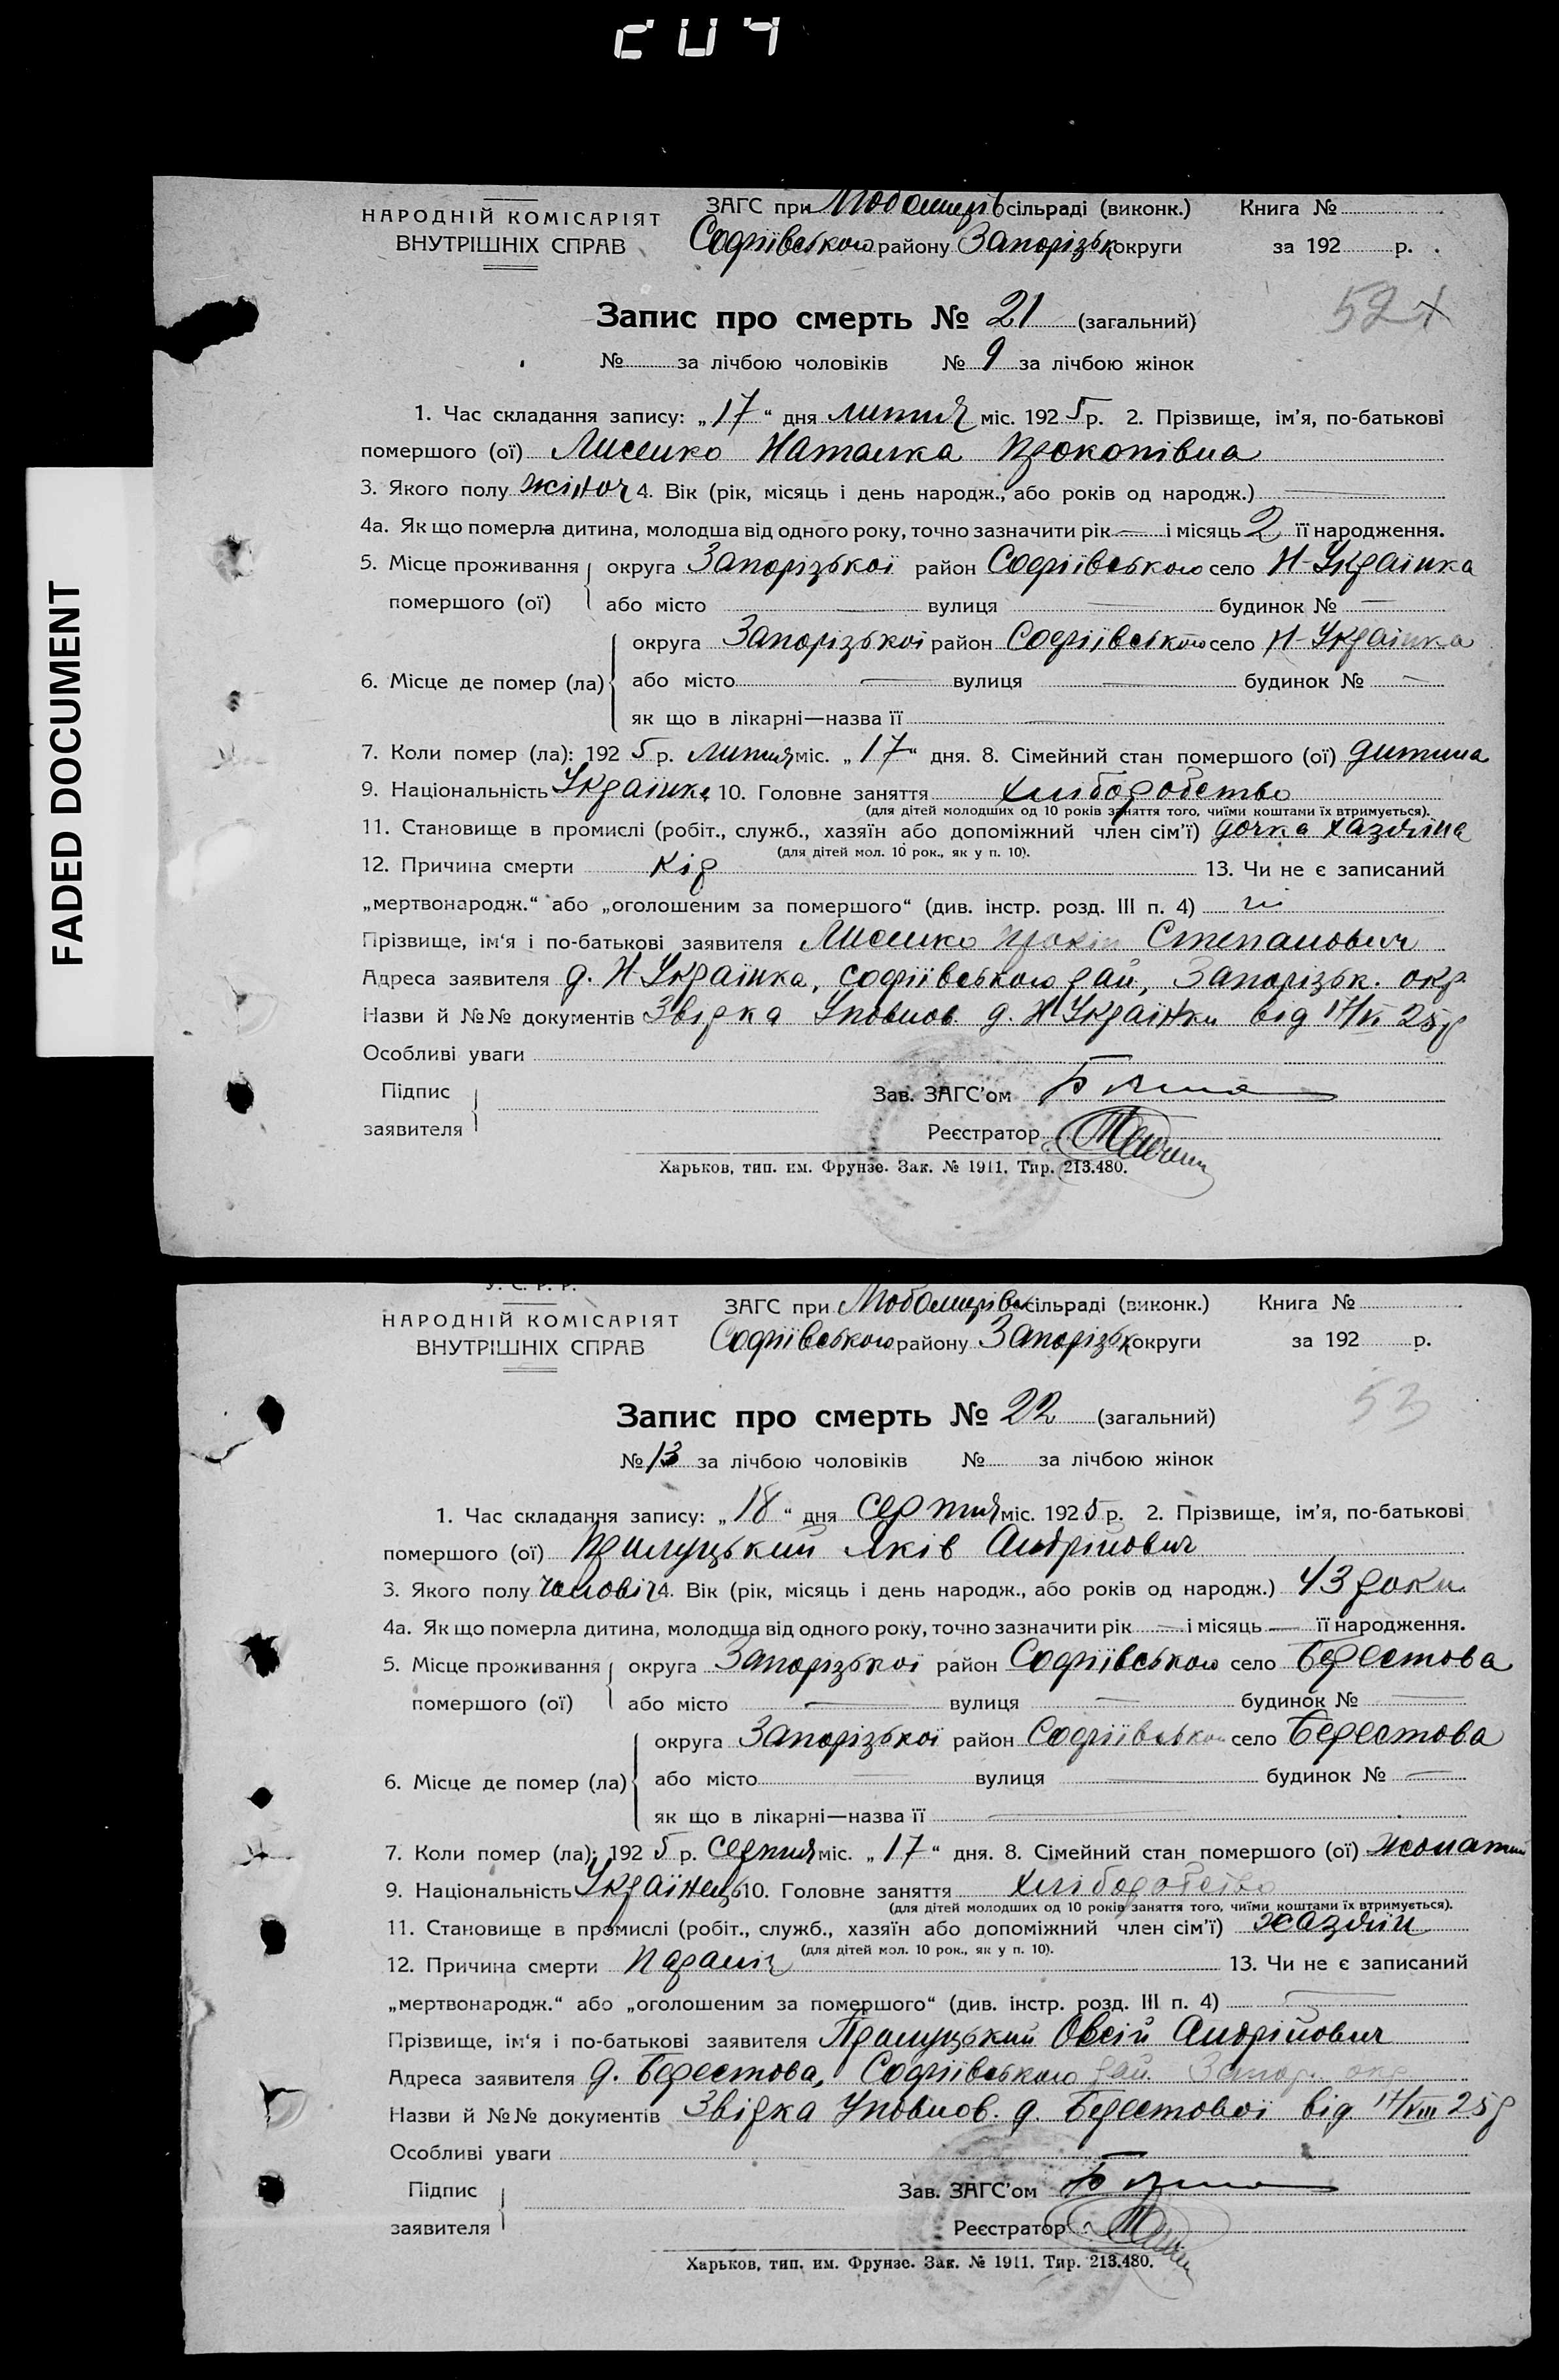 FADED DOCUMENT
НАРОДНІЙ КОМІСАРІЯТ
ВНУТРІШНІХ СПРАВ
ЗАГС при сільраді (виконк.) Книга №
Софіївського району Запорізьк округи за 192 р.
52
Запис про смерть № 21 (загальний)
№ за лічбою чоловіків № 9 за лічбою жінок
1. Час складання запису: „17“ дня липня міс. 1925 р. 2. Прізвище, ім’я, по-батькові
помершого (ої) Лисенко Наталка Прокопівна
3. Якого полу жіноч 4. Вік (рік, місяць і день народж., або років од народж.) —
4а. Як що померла дитина, молодша від одного року, точно зазначити рік — і місяць 2 її народження.
5. Місце проживання округа Запорізької район Софіївського село Н-Українка
помершого (ої) або місто — вулиця — будинок № —
округа Запорізької район Софіївського село Н-Українка
6. Місце де помер (ла) або місто — вулиця — будинок № —
як що в лікарні—назва її —
7. Коли помер (ла): 1925 р. липня міс. „17“ дня. 8. Сімейний стан помершого (ої) дитина
9. Національність Українка 10. Головне заняття хліборобство
(для дітей молодших од 10 років заняття того, чиїми коштами їх втримується).
11. Становище в промислі (робіт., служб., хазяїн або допоміжний член сім’ї) дочка хазяїна
(для дітей мол. 10 рок., як у п. 10).
12. Причина смерти кір 13. Чи не є записаний
„мертвонародж.“ або „оголошеним за помершого“ (див. інстр. розд. III п. 4) ні
Прізвище, ім‘я і по-батькові заявителя Лисенко Прокіп Степанович
Адреса заявителя д. Н-Українка, Софіївського рай, Запорізьк. окр.
Назви й №№ документів Звірка Уповнов. д. Н Українки від 17/VII 25р
Особливі уваги
Підпис
заявителя
Зав. ЗАГС’ом
Реєстратор
Харьков, тип. им. Фрунзе. Зак. № 1911. Тир. 213.480.
У. С. Р. Р.
НАРОДНІЙ КОМІСАРІЯТ
ВНУТРІШНІХ СПРАВ
ЗАГС при сільраді (виконк.) Книга №
Софіївського району Запорізьк округи за 192 р.
53
Запис про смерть № 22 (загальний)
№ 13 за лічбою чоловіків № за лічбою жінок
1. Час складання запису: „18“ дня серпня міс. 1925 р. 2. Прізвище, ім’я, по-батькові
помершого (ої) Прилуцький Яків Андрійович
3. Якого полу чоловіч 4. Вік (рік, місяць і день народж., або років од народж.) 43 роки
4а. Як що померла дитина, молодша від одного року, точно зазначити рік — і місяць — її народження.
5. Місце проживання округа Запорізької район Софіївського село Берестова
помершого (ої) або місто — вулиця — будинок № —
округа Запорізької район Софіївсько село Берестова
6. Місце де помер (ла) або місто — вулиця — будинок № —
як що в лікарні—назва її —
7. Коли помер (ла): 1925 р. серпня міс. „17“ дня. 8. Сімейний стан помершого (ої) жонатий
9. Національність Українець 10. Головне заняття хліборобство
(для дітей молодших од 10 років заняття того, чиїми коштами їх втримується).
11. Становище в промислі (робіт., служб., хазяїн або допоміжний член сім’ї) хазяїн
(для дітей мол. 10 рок., як у п. 10).
12. Причина смерти параліч 13. Чи не є записаний
„мертвонародж.“ або „оголошеним за помершого“ (див. інстр. розд. III п. 4) —
Прізвище, ім‘я і по-батькові заявителя Прилуцький Овсій Андрійович
Адреса заявителя д. Берестова, Софіївського рай. Запор. окр
Назви й №№ документів Звірка Уповнов. д. Берестової від 17/VIII 25р
Особливі уваги
Підпис
заявителя
Зав. ЗАГС’ом
Реєстратор
Харьков, тип. им. Фрунзе. Зак. № 1911. Тир. 213.480.